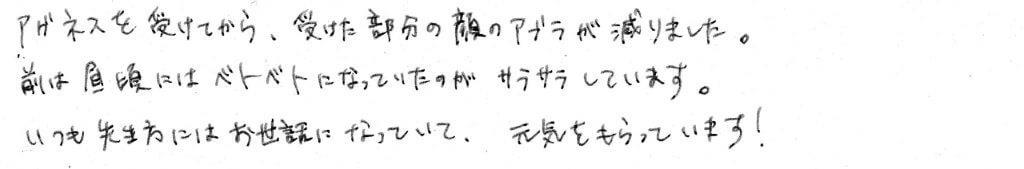 アガネスを受けてから、受けた部分の顔のアブラが減りました。
前は昼頃にはベトベトになっていたのがサラサラしています。
いつも先生方にはお世話になっていて、元気をもらっています！